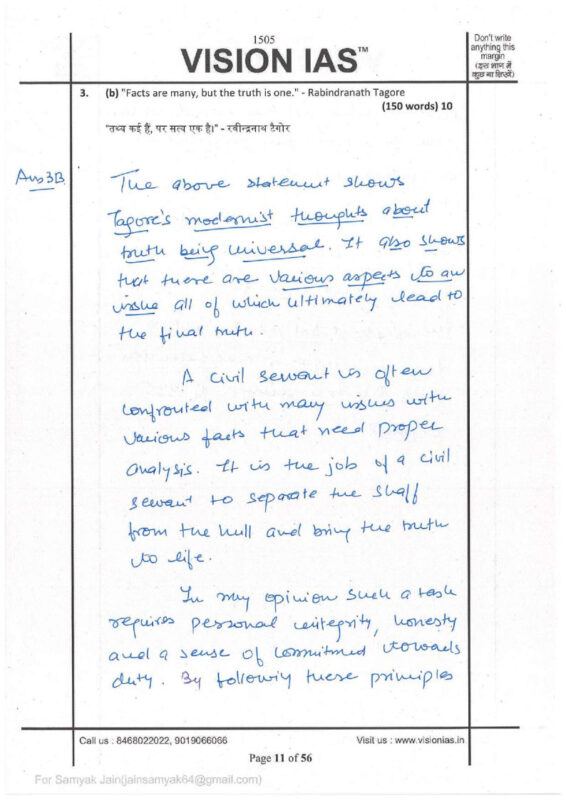 1505
VISION IAS™
Don't write
anything this
margin
(इस भाग में
कुछ ना लिखें)
3. (b) "Facts are many, but the truth is one." - Rabindranath Tagore
(150 words) 10
"तथ्य कई हैं, पर सत्य एक है।" - रवीन्द्रनाथ टैगोर
Ans 3B
The above statement shows
Tagore's modernist thoughts about
truth being universal. It also shows
that there are various aspects to an
issue all of which ultimately lead to
the final truth.
A civil servant is often
confronted with many issues with
various facts that need proper
analysis. It is the job of a civil
servant to separate the shaff
from the hull and bring the truth
to life.
In my opinion such a task
requires personal integrity, honesty
and a sense of commitmed towards
duty. By followiy these principles
Call us : 8468022022, 9019066066
Visit us : www.visionias.in
Page 11 of 56
For Samyak Jain(jainsamyak64@gmail.com)